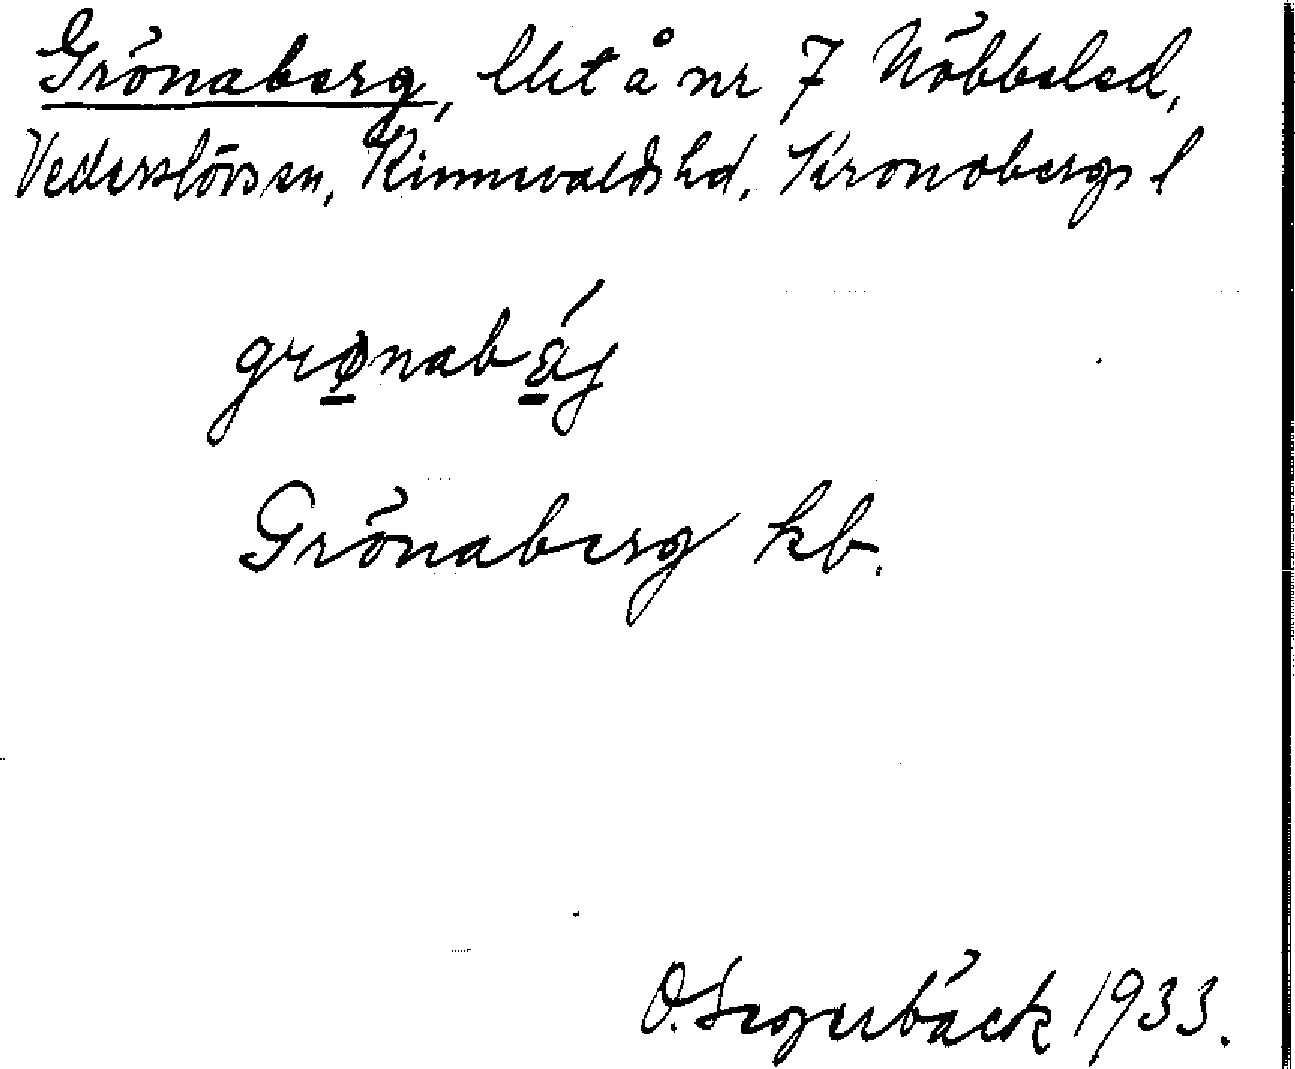 Grönaberg, lht å nr 7 Nöbbeled,
Vederslövs sn, Kinnevalds hd, Kronobergs l
grønabǽj
Grönaberg kb.
O. Segerbäck 1933.